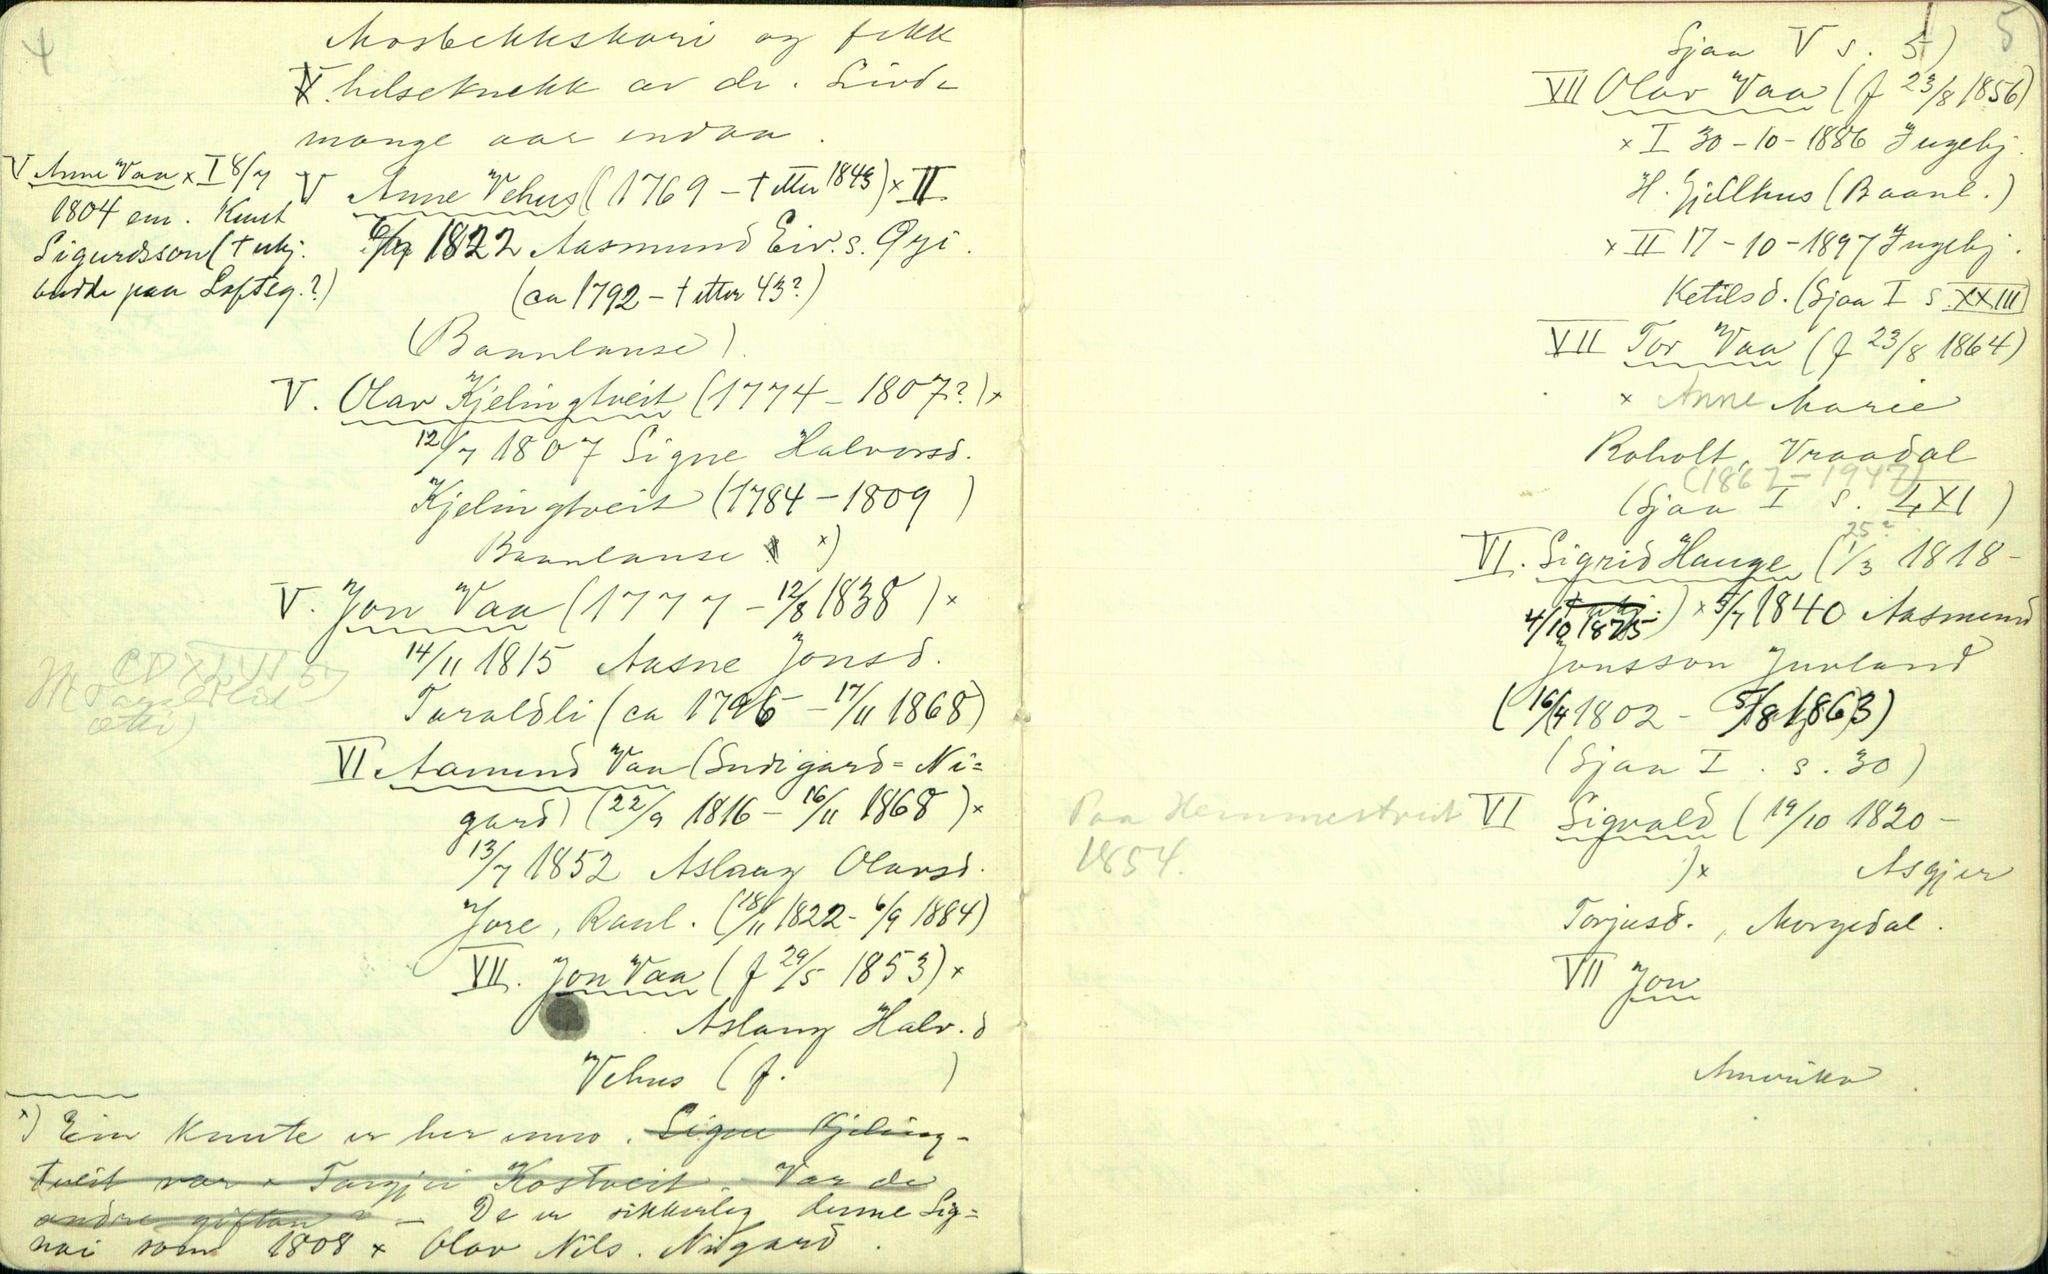 4
Mosbekkskari og fekk
V. helseknekk av de. Livde
mange aar endaa.
V Anne Vaa × I 8/7
1804 em. Knut
Sigurdsson († ukj.
budde paa Loftsg.?)
V Anne Vehus (1769 – † etter 1843) × II
1822 Aasmund Eiv.s. Øyi.
(ca 1792 – † etter 43?)
(Baanlause).
V. Olav Kjelingtveit (1774 – 1807?) ×
12/7 1807 Signe Halvorsd.
Kjelingtveit (1784 – 1809 )
Baanlause ×)
V. Jon Vaa (1777 – 12/8 1838) ×
14/11 1815 Aasne Jonsd.
Taraldli (ca 1796 – 17/11 1868)
VI Aamund Vaa (Sudigard = Ni=
gard) (22/9 1816 – 16/11 1868) ×
13/7 1852 Aslaug Olavsd.
Jore, Raul. (18/11 1822 – 6/9 1884)
VII. Jon Vaa (f 29/5 1853) ×
Aslaug Halv.d
Vehus (f. )
×) Ein knute er her enno. Signe Kjeling-
tveit var × Targjei Kostveit. Var de
andre giftan? – De er sikkerleg denne Sig=
nei som 1808 × Olav Nils. Nigard.
5
Sjaa V s. 5)
VII Olav Vaa (f 23/8 1856)
× I 30-10-1886 Ingebj.
H. Gjellhus (Baanl.)
× II 17-10-1897 Ingebj.
Ketilsd. (Sjaa I s XXIII)
VII Tor Vaa (f 23/8 1864)
× Anne Marie
Roholt, Vraadal
(1867 – 1947)
(Sjaa I s. LXI)
25?
VI. Sigrid Hauge (1/3 1818 –
4/10 1875) × 5/7 1840 Aasmund
Jonsson Juvland
(16/4 1802 – 5/8 1863)
(Sjaa I. s. 30)
Paa Hemmestveit
1854.
VI Sigvald (19/10 1820 –
) × Asgjer
Torjusd., Morgedal.
VII Jon
Amerika.